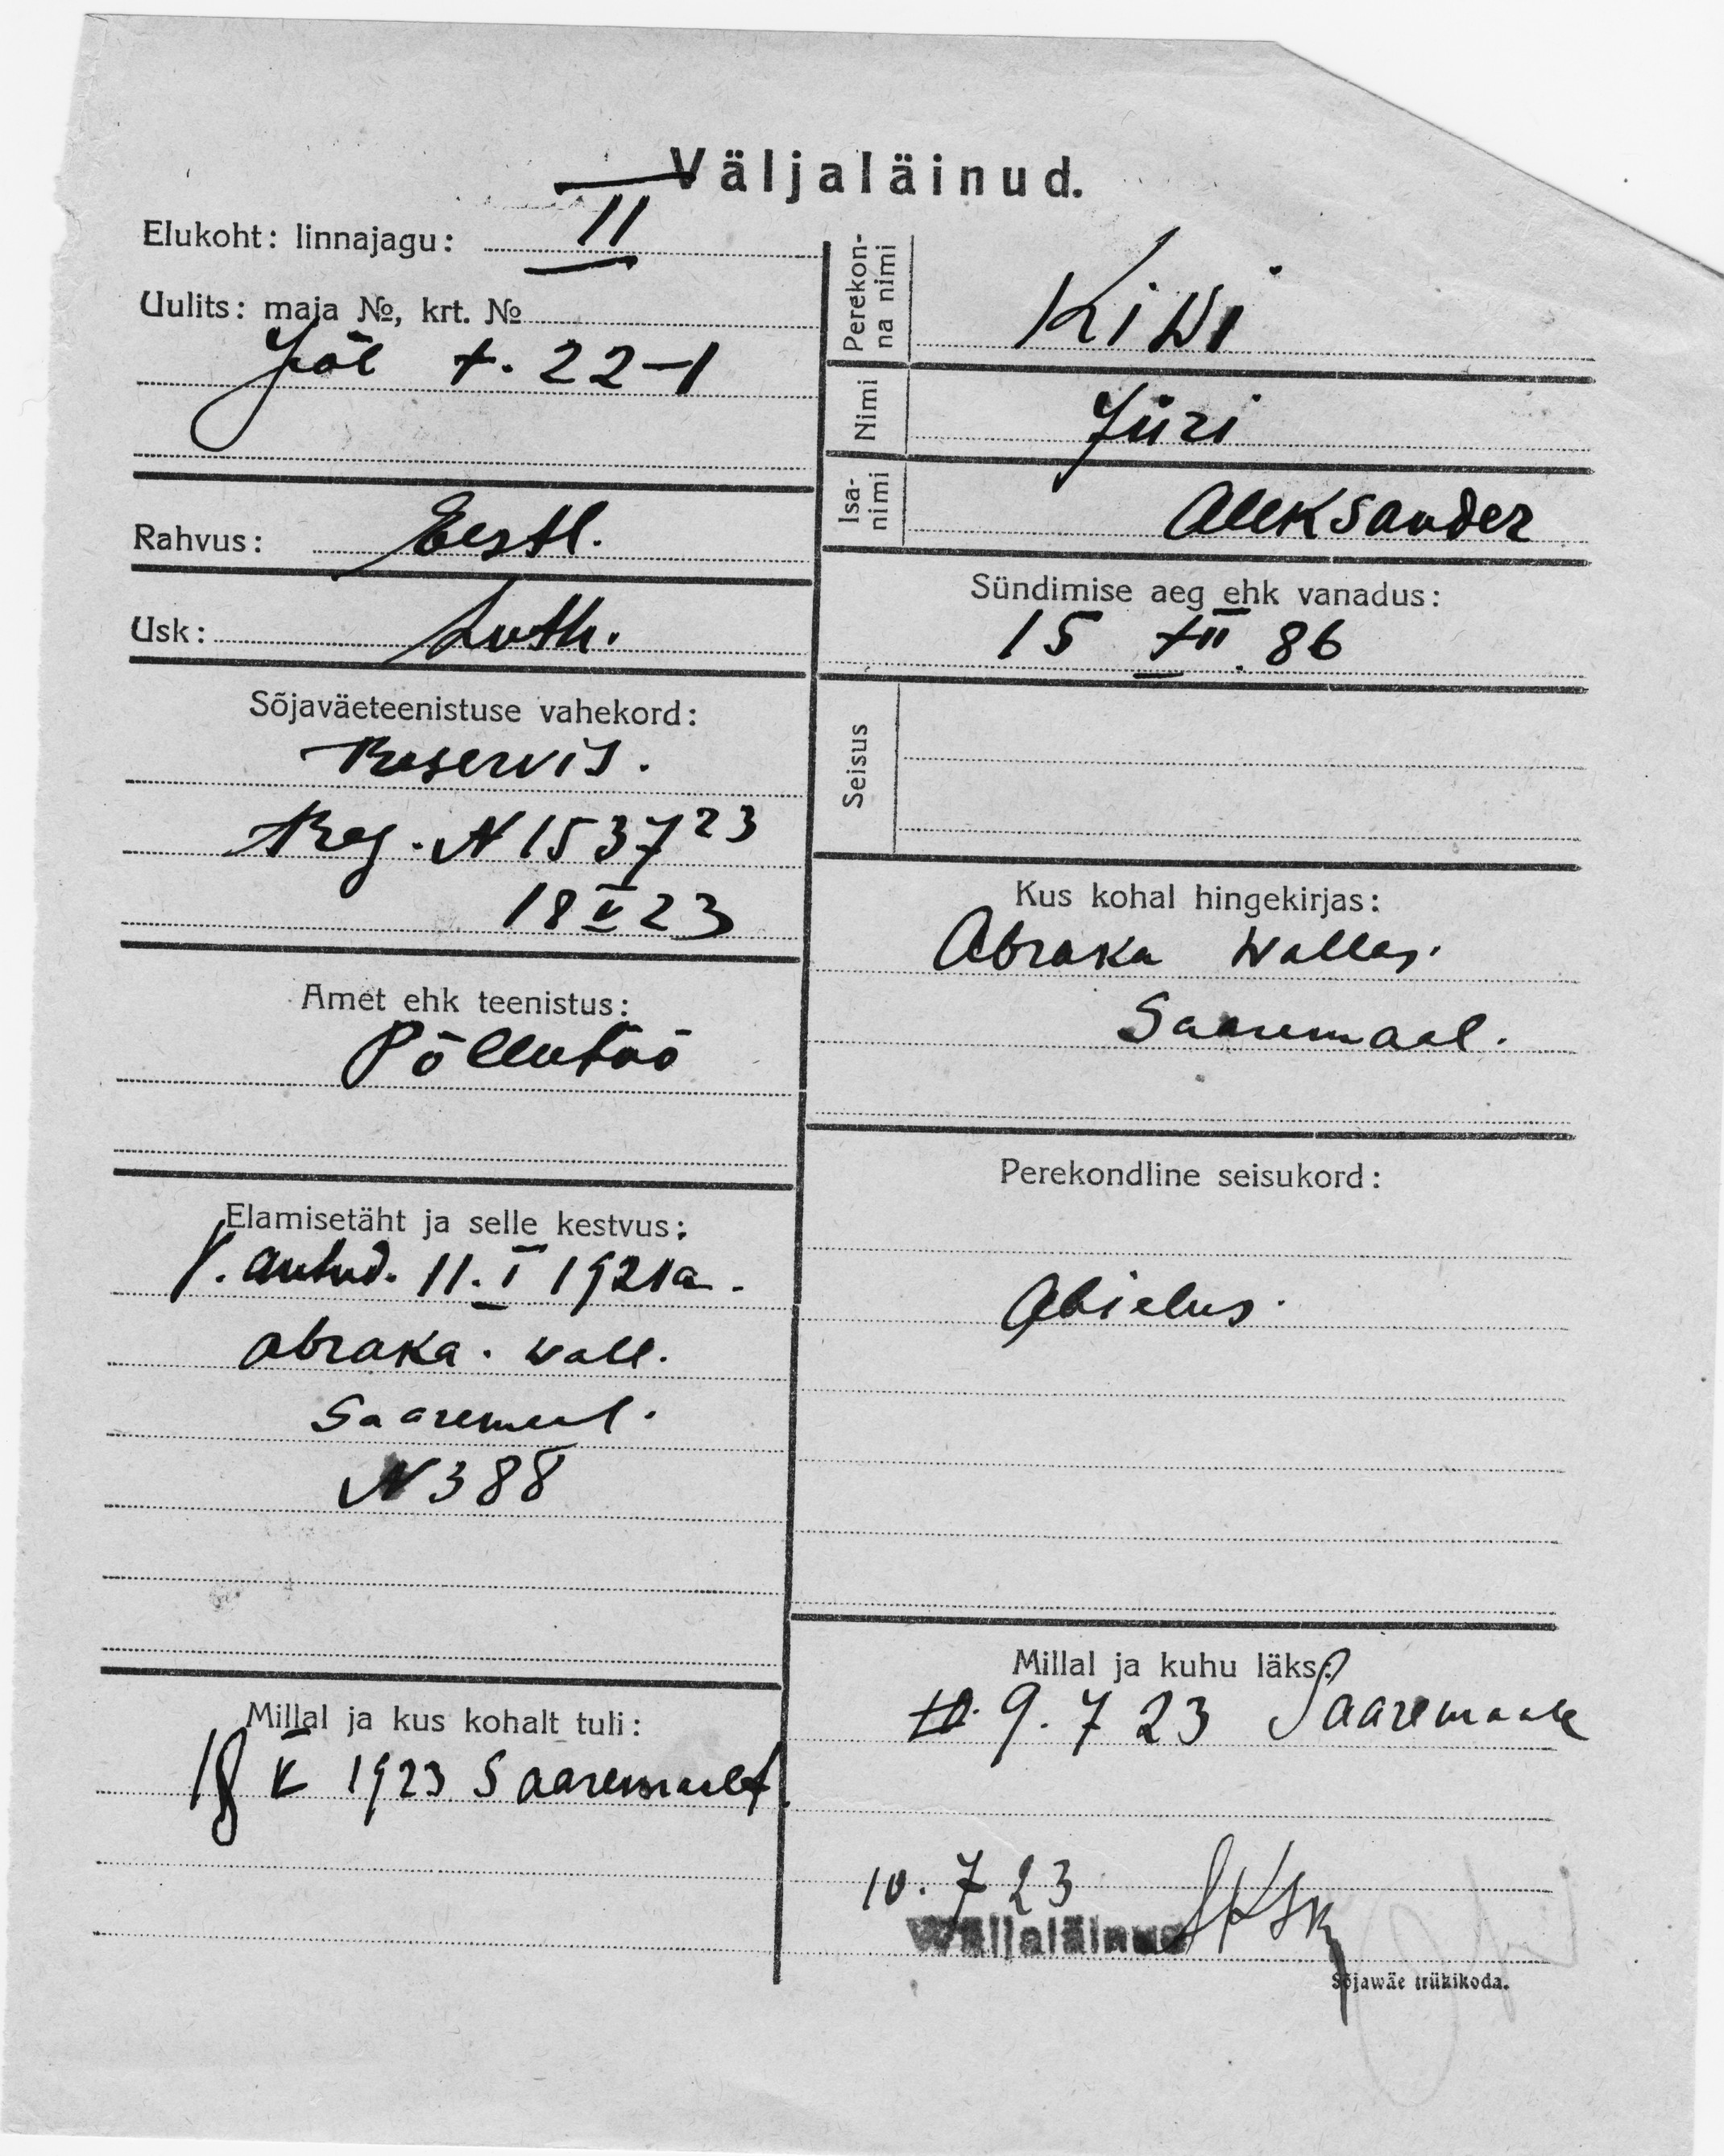 Väljaläinud.
Elukoht: linnajagu: II
Uulits: maja №, krt. №
Jõe t. 22-1
Rahvus: Eestl.
Usk: Luth.
Sõjaväeteenistuse vahekord:
Reservis.
Reg. N 1537 23
18 V 23
Amet ehk teenistus:
Põllutöö
Elamisetäht ja selle kestvus:
antud. 11. I 1921 a.
Abraka. wall.
Saaremaal.
N 388
Millal ja kus kohalt tuli:
18 V 1923 Saaremaalt
Perekonna nimi
Kiwi
Nimi
Jüri
Isanimi
Aleksander
Sündimise aeg ehk vanadus:
15 XII. 86
Seisus
Kus kohal hingekirjas:
Abraka wallas.
Saaremaal.
Perekondline seisukord:
Abielus.
Millal ja kuhu läks:
10. 9. 7 23 Saaremaale
10. 7 23
Wäljaläinud
Sõjawäe trükikoda.